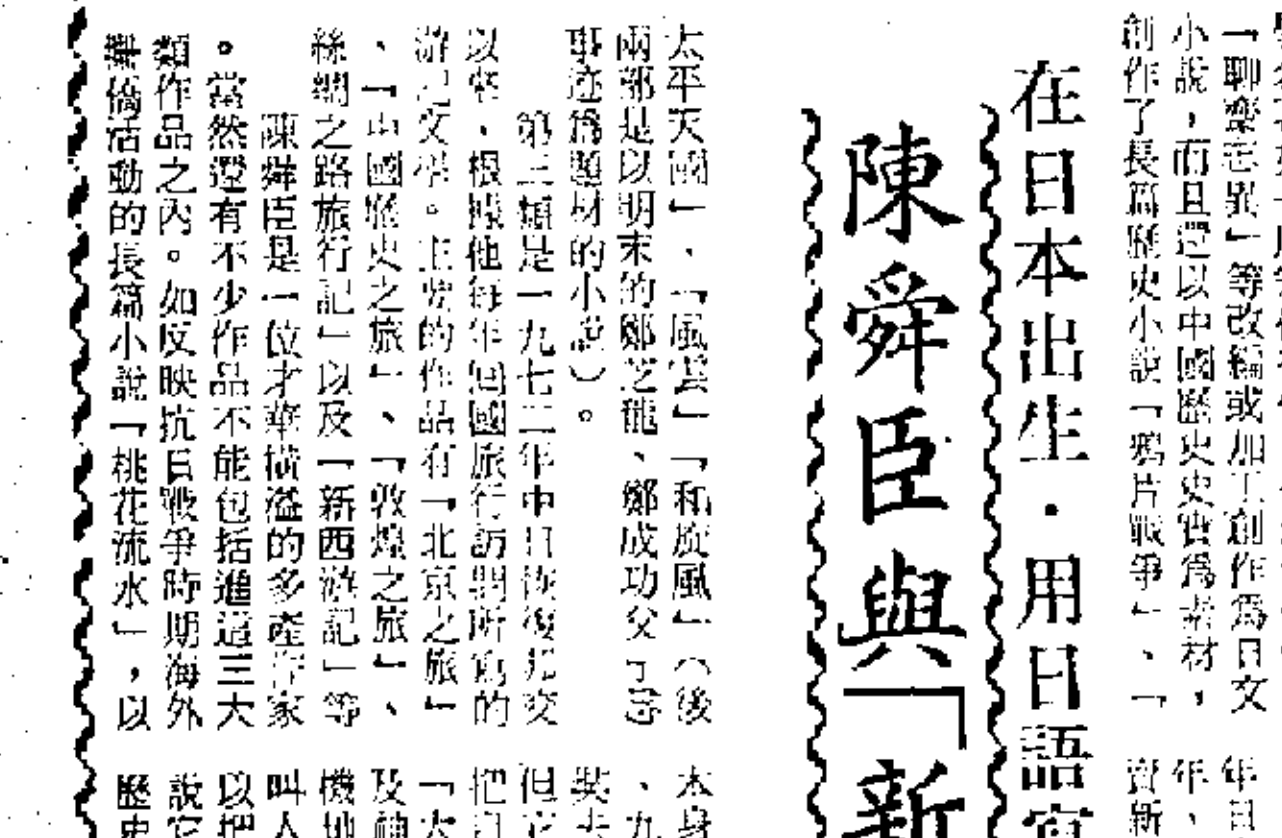 「聊齋志異」等改編或加工創作爲日文
小說，而且還以中國歷史史實爲素材，
創作了長篇歷史小說「鴉片戰爭」、「
在日本出生·用日語寫
陳舜臣與「新
太平天國」、「風雲」「和旋風」（後
兩部是以明末的鄭芝龍、鄭成功父子
事迹爲題材的小說）。
第三類是一九七二年中日恢復邦交
以來，根據他每年回國旅行訪問所寫的
游記文學。主要的作品有「北京之旅」
、「中國歷史之旅」、「敦煌之旅」、
絲綢之路旅行記」以及「新西游記」等
陳舜臣是一位才華橫溢的多產作家
。當然還有不少作品不能包括進這三大
類作品之內。如反映抗日戰爭時期海外
華僑活動的長篇小說「桃花流水」，以
年
年，
資新
本身
、九
但它
把自
「大
及神
機地
叫人
以把
說它
歷史